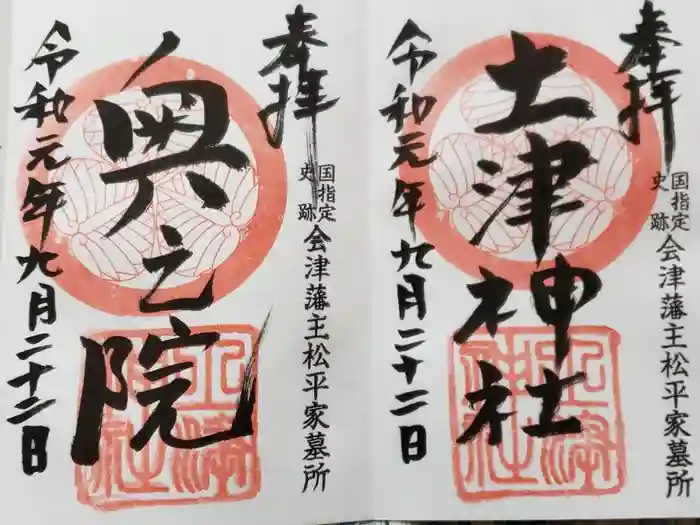 奉拝
土津神社
国指定史跡 会津藩主松平家墓所
令和元年九月二十二日
土津神社
奉拝
奥之院
国指定史跡 会津藩主松平家墓所
令和元年九月二十二日
土津神社